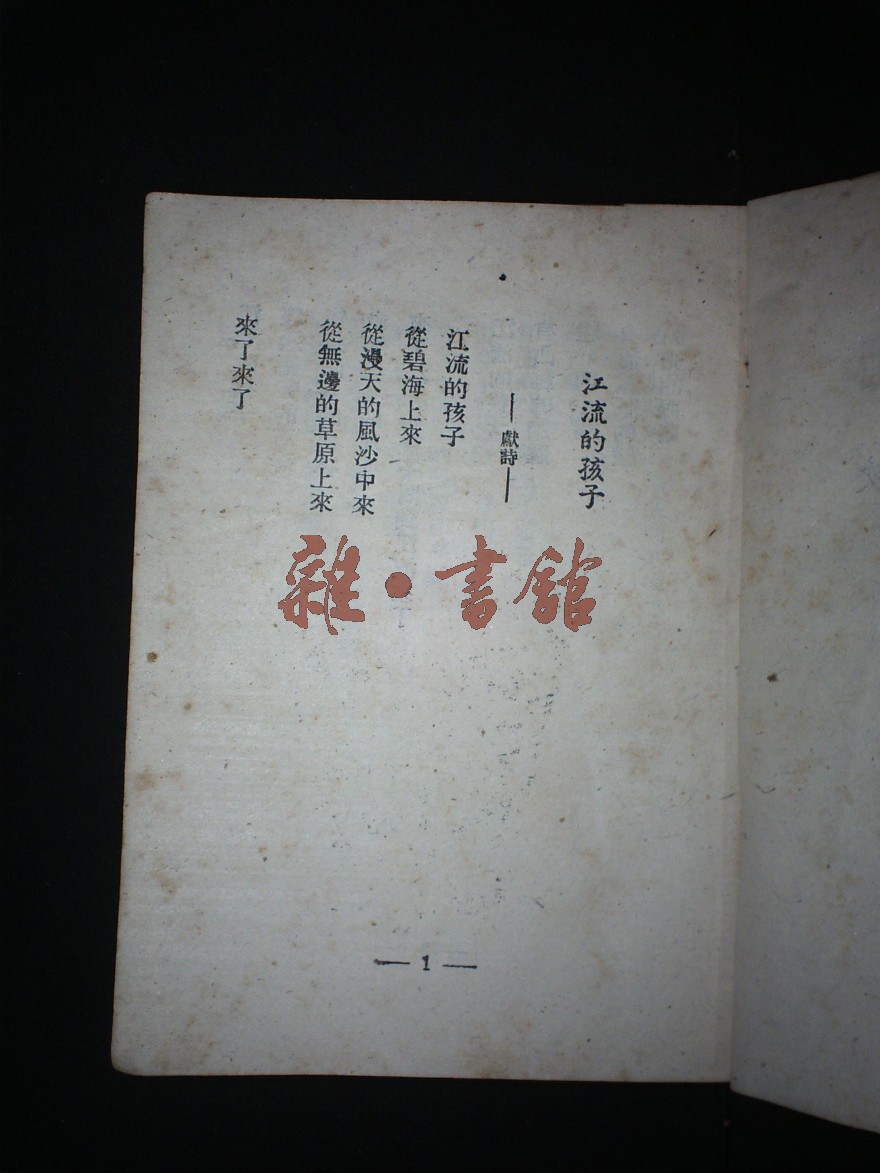 江流的孩子
——獻詩——
江流的孩子
從碧海上來
從漫天的風沙中來
從無邊的草原上來
來了來了
雜·書館
— 1 —